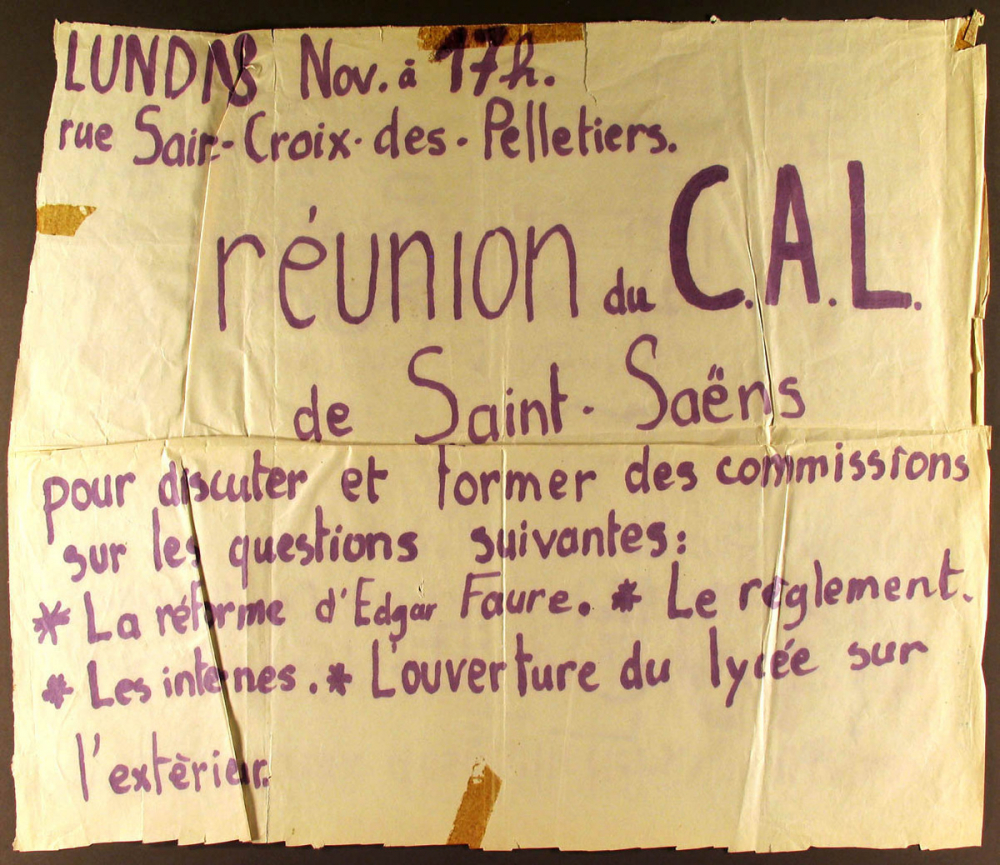 LUNDI 18 Nov. à 17h.
rue Sair-Croix-des-Pelletiers.
réunion du C.A.L.
de Saint-Saëns
pour discuter et former des commissions
sur les questions suivantes:
* La réforme d'Edgar Faure. * Le règlement.
* Les internes. * L'ouverture du lycée sur
l'extèrieur.